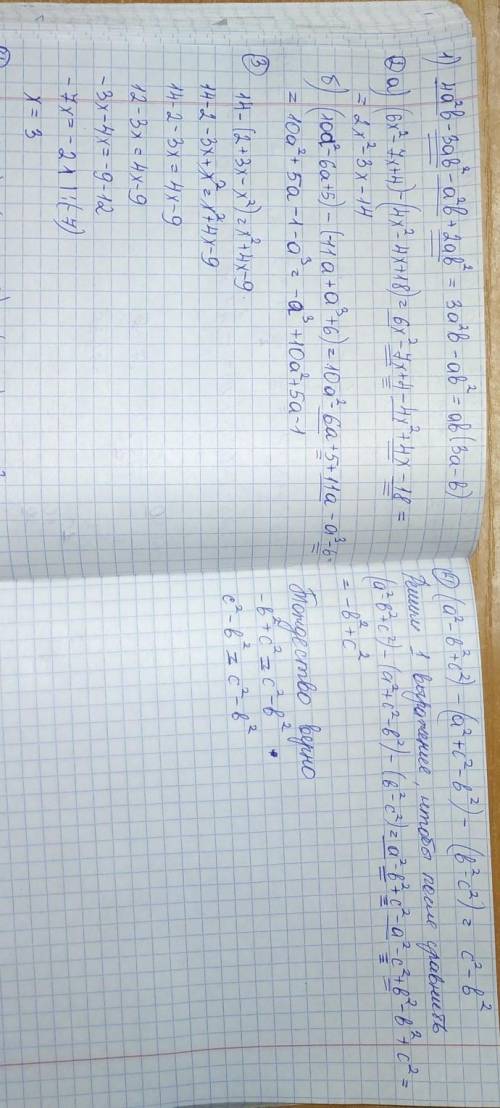 1) 4a²b - 3ab² - a²b + 2ab² = 3a²b - ab² = ab(3a - b)
② а) (6x² - 7x + 4) - (4x² - 4x + 18) = 6x² - 7x + 4 - 4x² + 4x - 18 =
= 2x² - 3x - 14
б) (10a² - 6a + 5) - (-11a + a³ + 6) = 10a² - 6a + 5 + 11a - a³ - 6 =
= 10a² + 5a - 1 - a³ = -a³ + 10a² + 5a - 1
③ 14 - (2 + 3x - x²) = x² + 4x - 9
14 - 2 - 3x + x² = x² + 4x - 9
14 - 2 - 3x = 4x - 9
12 - 3x = 4x - 9
-3x - 4x = -9 - 12
-7x = -21 | :(-7)
x = 3
④ (a² - b² + c²) - (a² + c² - b²) - (b² - c²) = c² - b²
Решим 1 выражение, чтобы после сравнить
(a² - b² + c²) - (a² + c² - b²) - (b² - c²) = a² - b² + c² - a² - c² + b² - b² + c² =
= -b² + c²
Тождество верно
-b² + c² = c² - b²
c² - b² = c² - b²